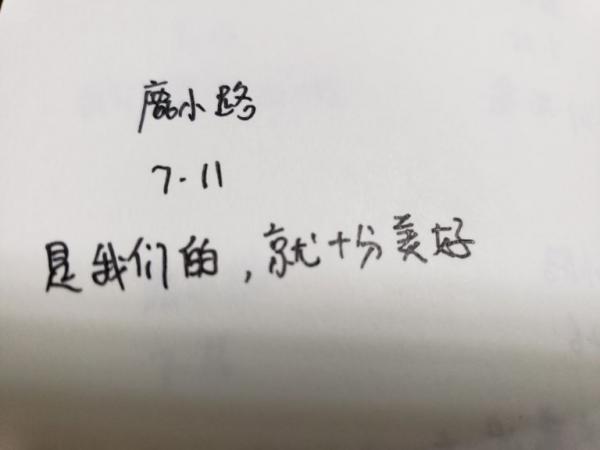 鹿小路
7.11
是我们的,就十分美好